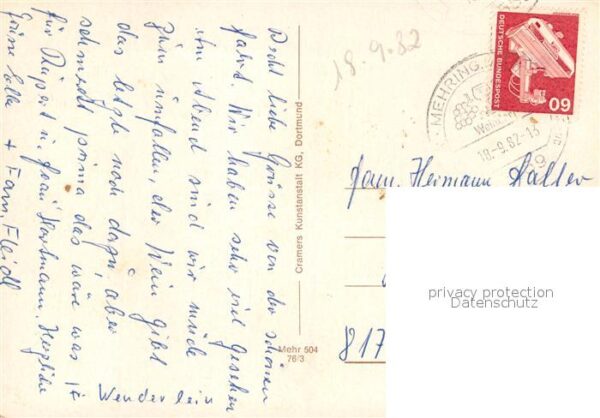 Recht liebe Grüsse von der schönen
Fahrt. Wir haben sehr viel gesehen
am Abend sind wir müde
zum umfallen, der Wein gibt
das letzte noch dazu, aber
schmeckt prima das wäre was
für Rupert u. Frau Hartmann, Herzliche
Grüsse + Fam. Fleidl
+ Wenderlein
Cramers Kunstanstalt KG, Dortmund
Mehr 504
76/3
18.9.82
MEHRING
18.-9.82-13
DEUTSCHE BUNDESPOST
60
Fam. Hermann
817
privacy protection
Datenschutz